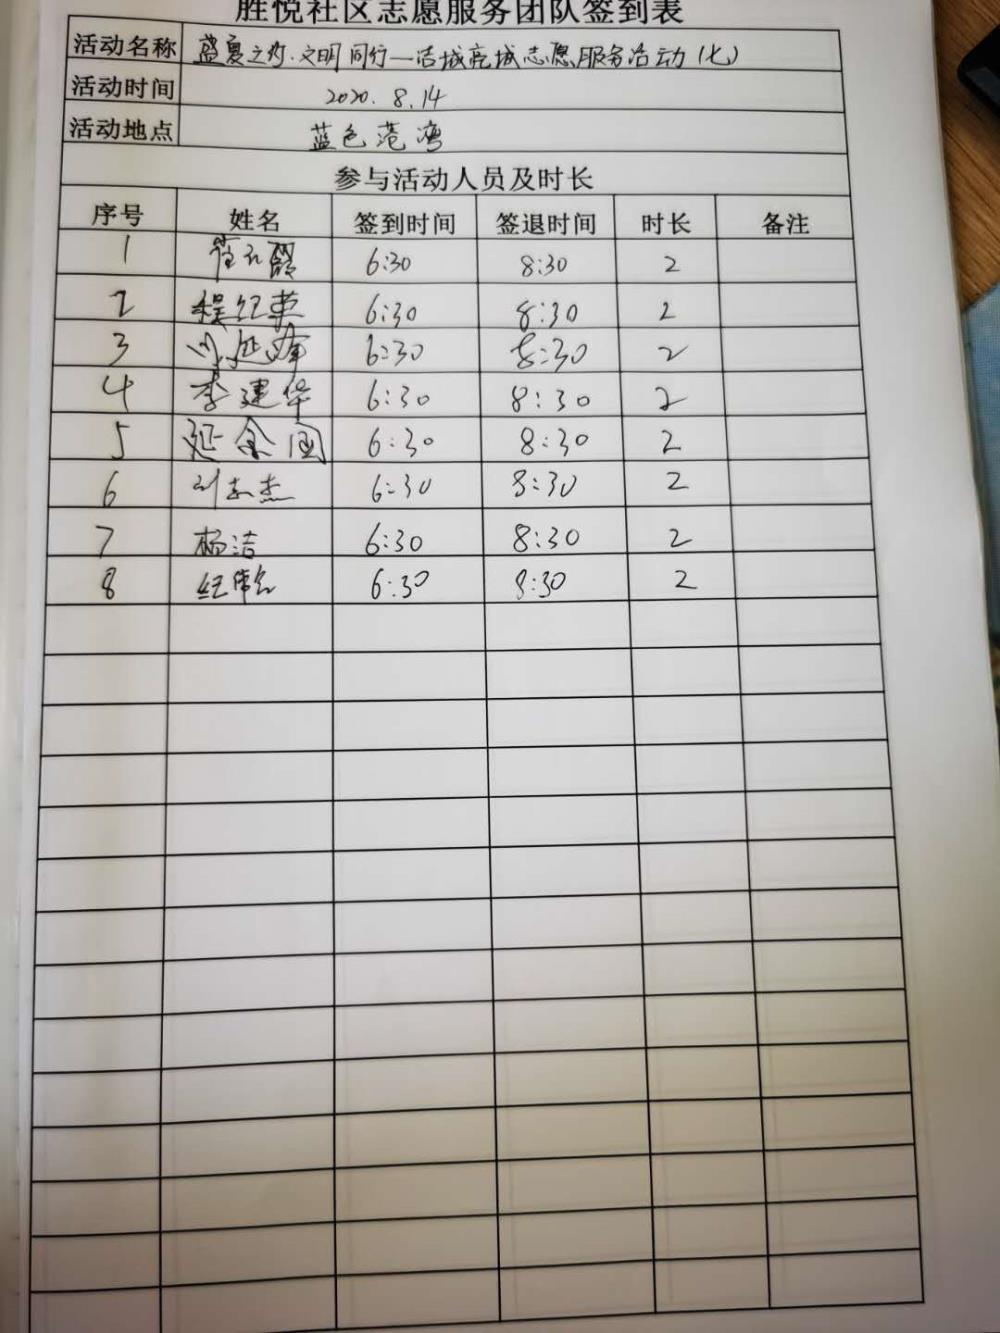 胜悦社区志愿服务团队签到表
活动名称 盛夏之约·文明同行—洁城亮城志愿服务活动（七）
活动时间 2020.8.14
活动地点 蓝色港湾
参与活动人员及时长
序号 姓名 签到时间 签退时间 时长 备注
1 6:30 8:30 2
2 程红英 6:30 8:30 2
3 6:30 8:30 2
4 李建华 6:30 8:30 2
5 延金国 6:30 8:30 2
6 刘志杰 6:30 8:30 2
7 杨洁 6:30 8:30 2
8 6:30 8:30 2